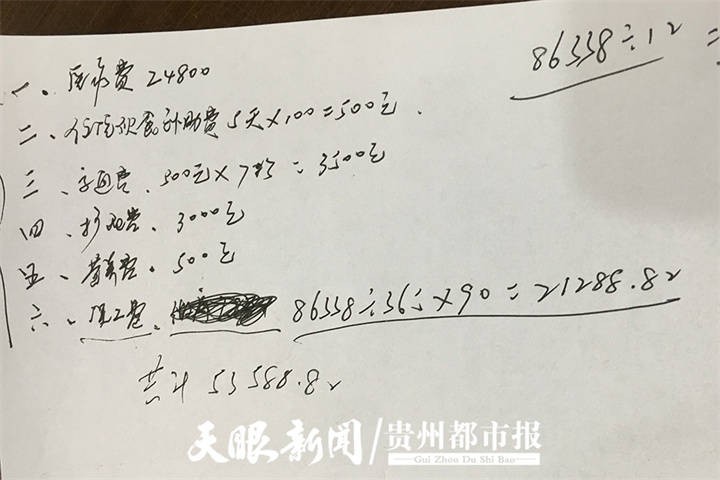 86338÷12 =
一、医疗费 24800
二、住院伙食补助费 5天×100=500元.
三、交通费、500元×7次=3500元
四、护理费、3000元
五、营养费、500元
六、误工费、86338÷365×90=21288.82
共计 53588.82
天眼新闻/贵州都市报
Gui Zhou Du Shi Bao